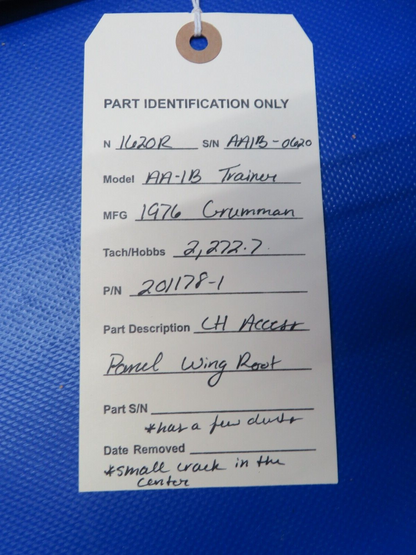 PART IDENTIFICATION ONLY
N 1620R S/N AA1B-0620
Model AA-1B Trainer
MFG 1976 Grumman
Tach/Hobbs 2,272.7
P/N 201178-1
Part Description LH Access
Panel Wing Root
Part S/N
*has a few dents
Date Removed
*small crack in the
center